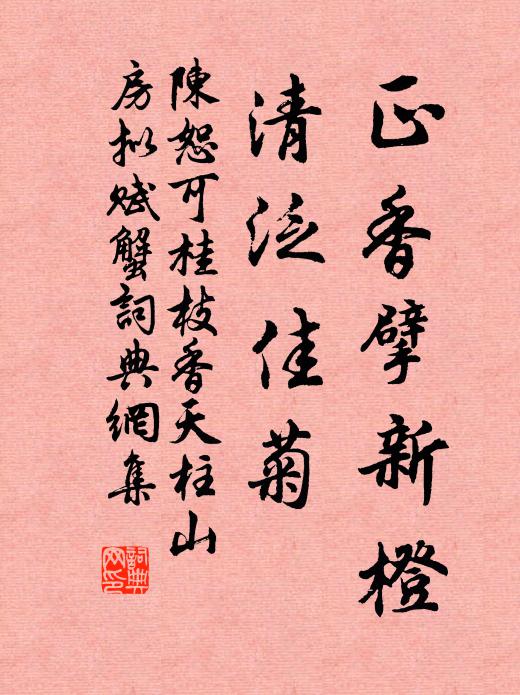 正香擘新橙
清泛佳菊
陳恕可桂枝香天柱山
房拟賦蟹詞典網集
詞典网印